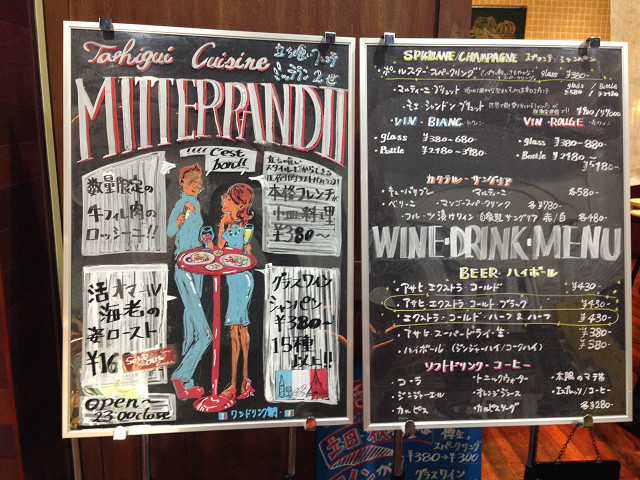 Tachigui Cuisine
立ち喰いフレンチ
MITTERRAND II
C'est bon!!
数量限定の
牛フィレ肉の
ロッシーニ!!
立ち喰い
スタイルだからできる
本格フレンチが
小皿料理
¥380~
活オマール
海老の
姿ロースト!
SOLD OUT
グラスワイン
シャンパン
¥380~
15種
以上!!
open~
23:00 close
ワンドリンク制
SPUMANTE/CHAMPAGNE スプマンテ/シャンパン
ポールスター スパークリング glass ¥380-
glass / Bottle
マルティーニ ブリュット
モエ・シャンドン ブリュット
VIN・BLANC 白ワイン
VIN・ROUGE 赤ワイン
・glass ¥380~680-
・Bottle ¥2180~
・glass ¥380~880-
・Bottle ¥2180~
¥5180-
カクテル・サングリア
マルティーニ 各580-
ベリーニ ・マンゴースパークリング 各¥780-
フルーツ漬けワイン 自家製サングリア 赤/白 各480-
WINE・DRINK・MENU
BEER・ハイボール
・アサヒ エクストラ・コールド ¥430-
・アサヒ エクストラ コールド ブラック ¥430-
エクストラ・コールド・ハーフ&ハーフ ¥430-
・アサヒ・スーパードライ・生 ¥380-
・ハイボール (ジンジャーハイ/コークハイ) ¥380-
ソフトドリンク・コーヒー
・コーラ ・トニックウォーター ・太陽のマテ茶
・ジンジャーエール ・オレンジジュース ・エスプレッソ/コーヒー
・カルピス ・カルピスソーダ 各¥280-
スパークリング
¥380→¥300
グラスワイン